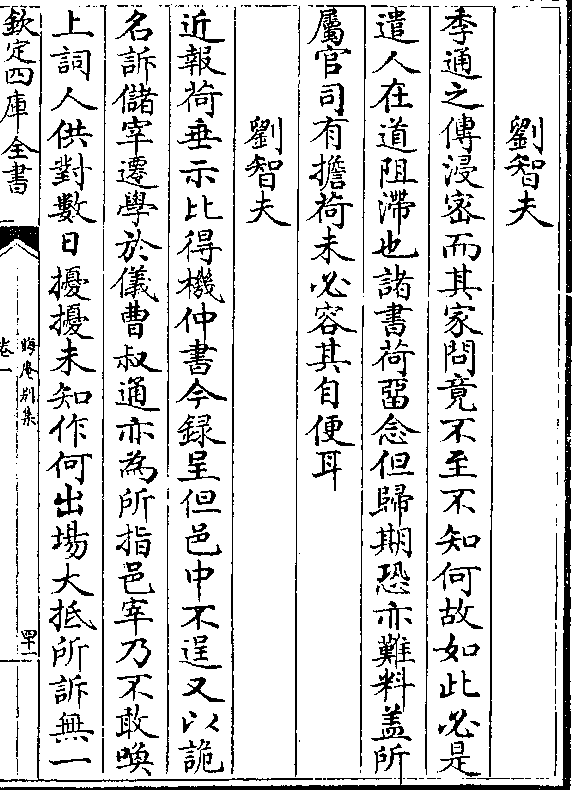 劉智夫
季通之傳浸密而其家問竟不至不知何故如此必是
遣人在道阻滯也諸書荷留念但歸期恐亦難料盖所
屬官司有擔荷未必容其自便耳
劉智夫
近報荷垂示比得機仲書今録呈但邑中不逞又以詭
名訴儲宰遷學於儀曹叔通亦為所指邑宰乃不敢喚
上詞人供對數日擾擾未知作何出場大抵所訴無一
欽定四庫全書
晦庵别集
卷一
四十